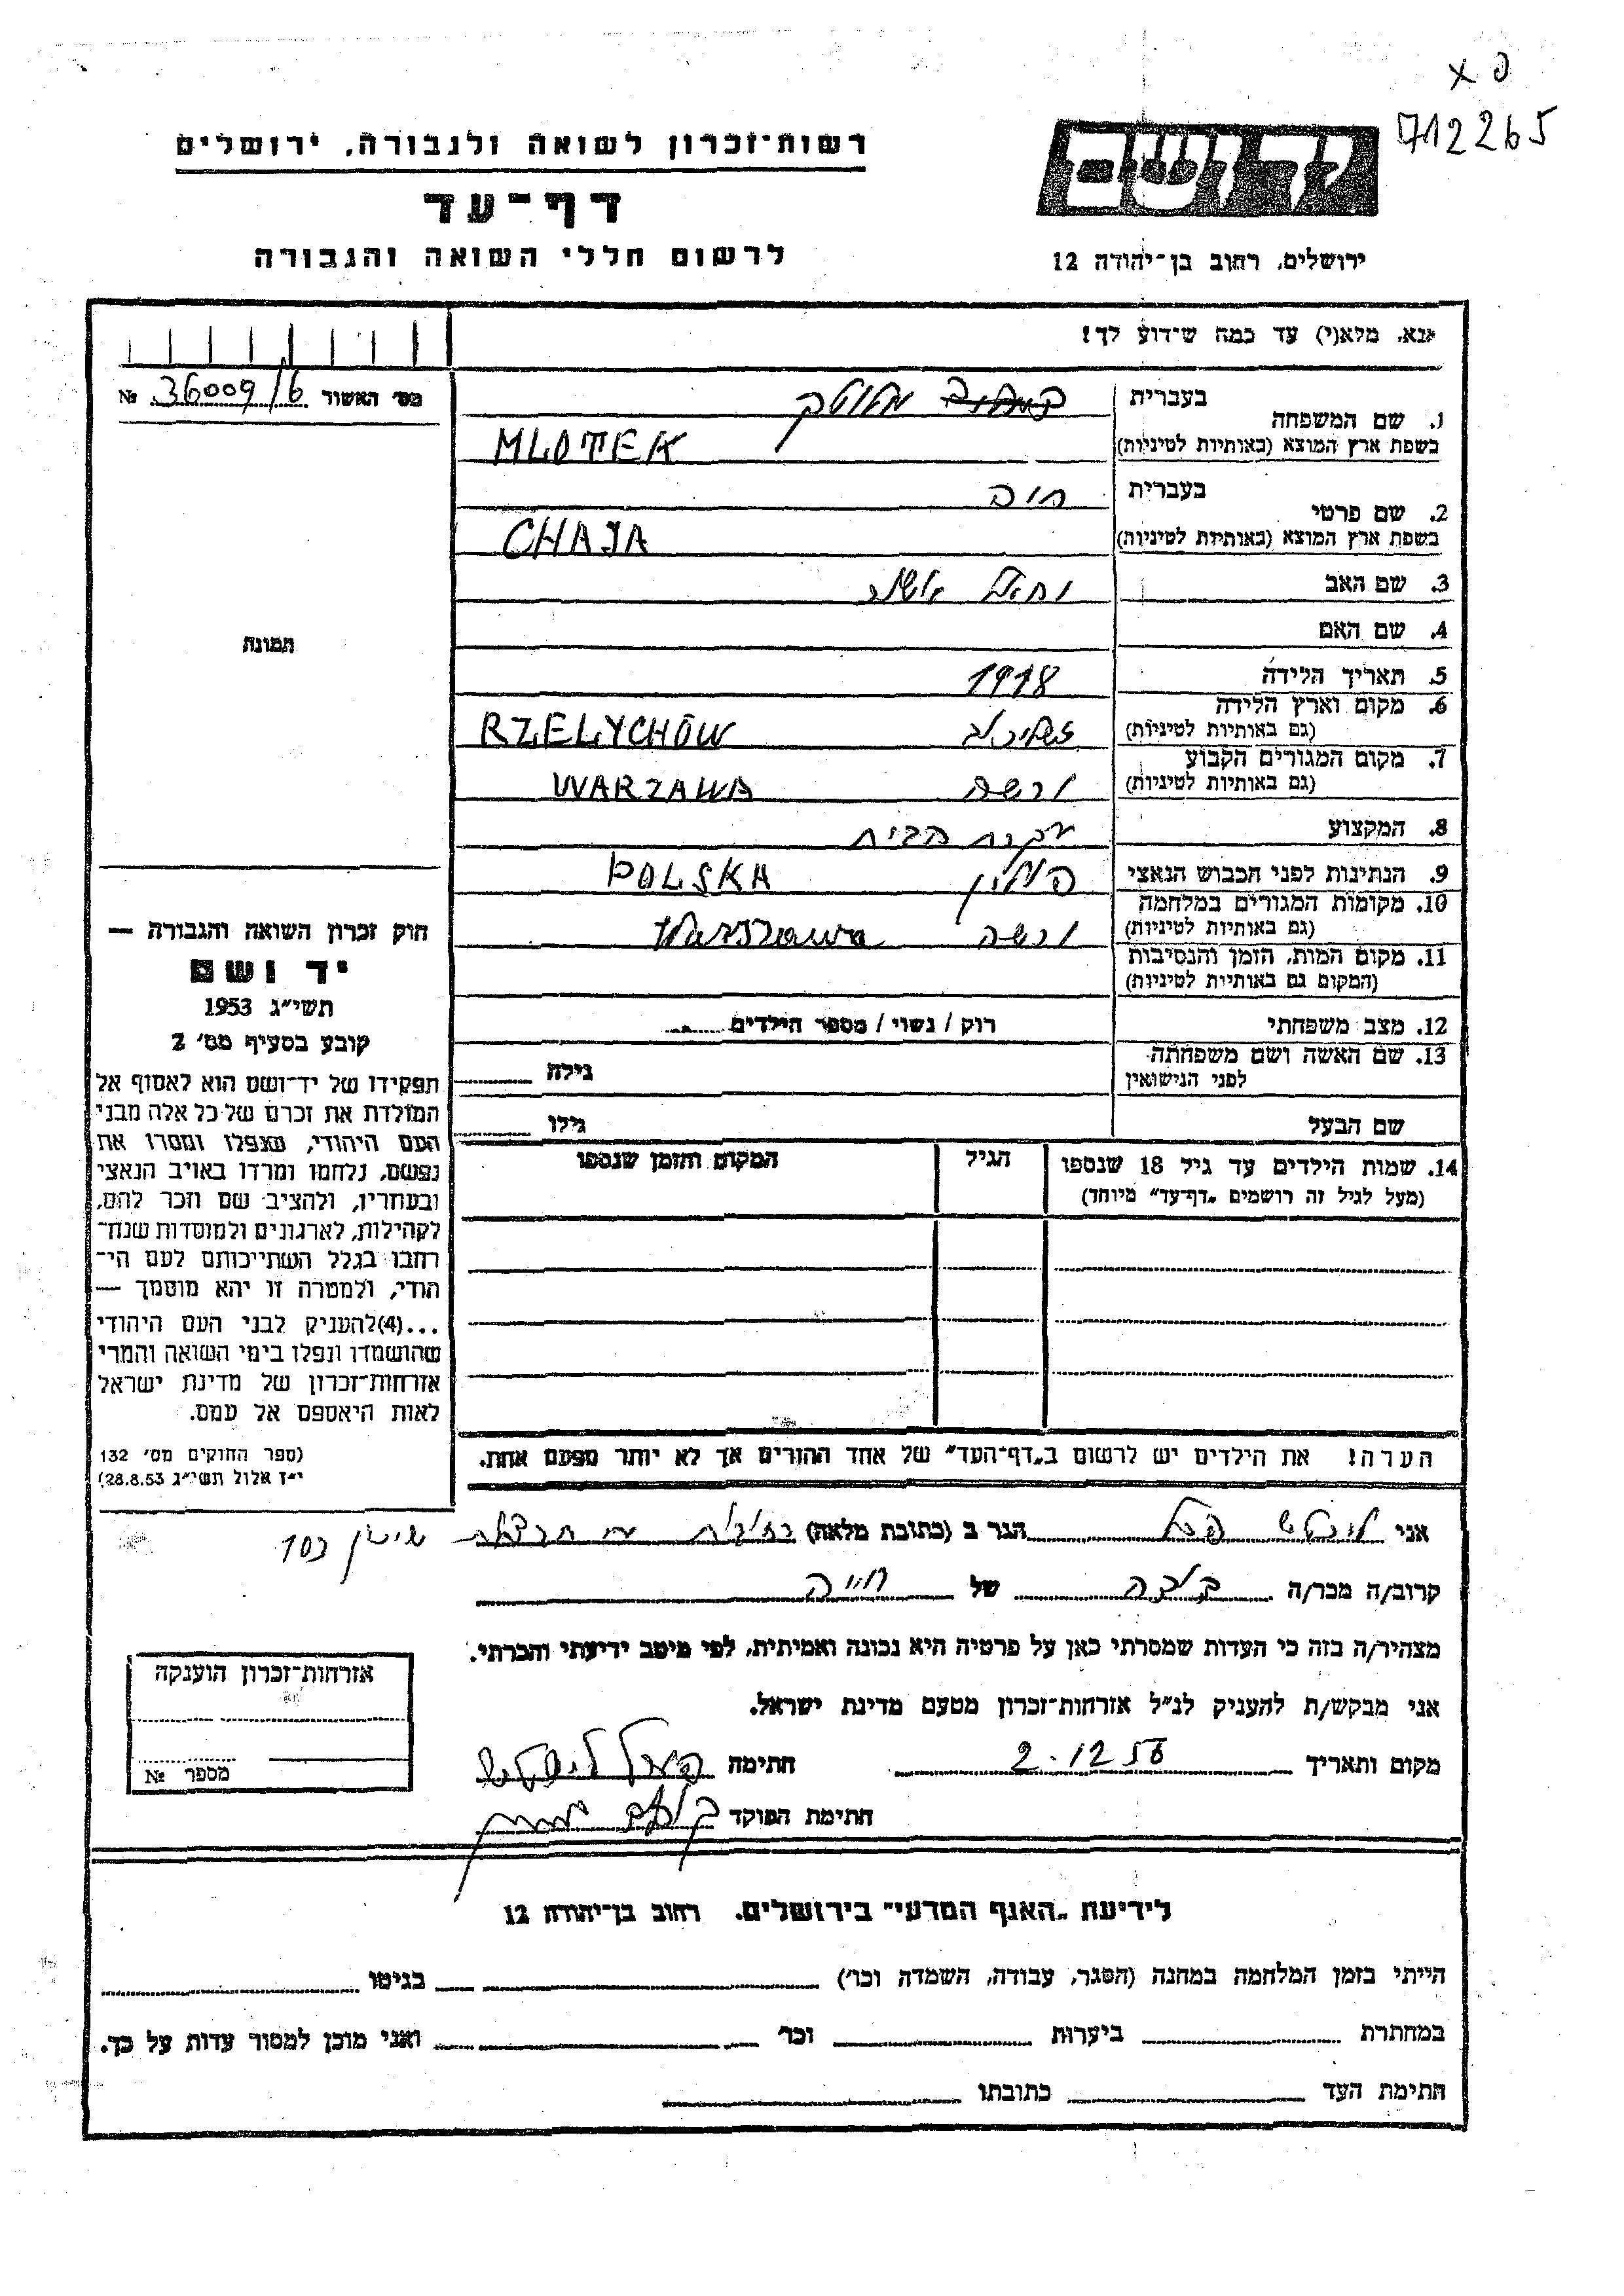 712265
רשות־זכרון לשואה ולגבורה, ירושלים
דף־עד
לרשום חללי השואה והגבורה
יד ושם
ירושלים, רחוב בן־יהודה 12
אנא, מלא(י) עד כמה שידוע לך!
מס׳ האשור 36009/6 №
1. שם המשפחה
בעברית מלוטק
בשפת ארץ המוצא (באותיות לטיניות) MLOTEK
2. שם פרטי
בעברית חיה
בשפת ארץ המוצא (באותיות לטיניות) CHAJA
3. שם האב
4. שם האם
5. תאריך הלידה 1918
6. מקום וארץ הלידה
(גם באותיות לטיניות) RZELYCHÓW
7. מקום המגורים הקבוע
(גם באותיות לטיניות) ורשה WARZAWA
8. המקצוע עקרת הבית
9. הנתינות לפני הכבוש הנאצי פולין POLSKA
10. מקומות המגורים במלחמה
(גם באותיות לטיניות) ורשה Warszawa
11. מקום המות, הזמן והנסיבות
(המקום גם באותיות לטיניות)
12. מצב משפחתי רוק / נשוי / מספר הילדים
13. שם האשה ושם משפחתה
לפני הנישואין
גילה
שם הבעל גילו
14. שמות הילדים עד גיל 18 שנספו הגיל המקום והזמן שנספו
(מעל לגיל זה רושמים „דף־עד״ מיוחד)
הערה! את הילדים יש לרשום ב„דף־העד״ של אחד ההורים אך לא יותר מפעם אחת.
תמונה
חוק זכרון השואה והגבורה —
יד ושם
תשי״ג 1953
קובע בסעיף מס׳ 2
תפקידו של יד־ושם הוא לאסוף אל
המולדת את זכרם של כל אלה מבני
העם היהודי, שנפלו ומסרו את
נפשם, נלחמו ומרדו באויב הנאצי
ובעוזריו, ולהציב שם וזכר להם,
לקהילות, לארגונים ולמוסדות שנח־
רבו בגלל השתייכותם לעם הי־
הודי, ולמטרה זו יהא מוסמך —
...(4)להעניק לבני העם היהודי
שהושמדו ונפלו בימי השואה והמרי
אזרחות־זכרון של מדינת ישראל
לאות היאספם אל עמם.
(ספר החוקים מס׳ 132
י״ז אלול תשי״ג 28.8.53)
אני הגר ב (כתובת מלאה) שיכון 103
קרוב/ה מכר/ה של חייה
מצהיר/ה בזה כי העדות שמסרתי כאן על פרטיה היא נכונה ואמיתית, לפי מיטב ידיעתי והכרתי.
אני מבקש/ת להעניק לנ״ל אזרחות־זכרון מטעם מדינת ישראל.
מקום ותאריך 2.12.56 חתימה
חתימת הפוקד
אזרחות־זכרון הוענקה
מספר №
לידיעת „האגף המדעי״ בירושלים, רחוב בן־יהודה 12
הייתי בזמן המלחמה במחנה (הסגר, עבודה, השמדה וכו׳) בגיטו
במחתרת ביערות וכו׳ ואני מוכן למסור עדות על כך.
חתימת העד כתובתו